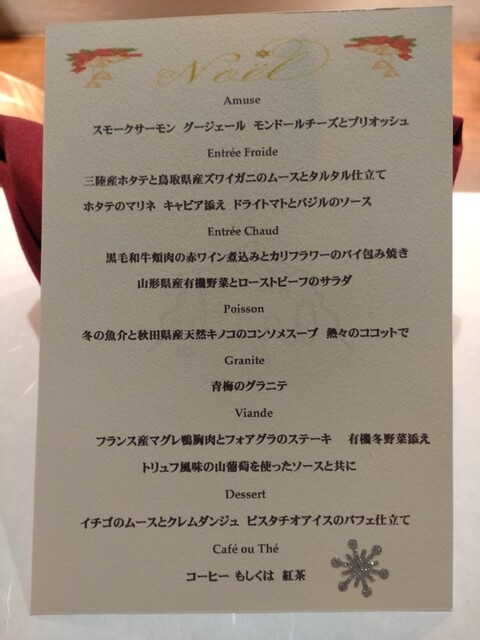 Noël
Amuse
スモークサーモン グージェール モンドールチーズとブリオッシュ
Entrée Froide
三陸産ホタテと鳥取県産ズワイガニのムースとタルタル仕立て
ホタテのマリネ キャビア添え ドライトマトとバジルのソース
Entrée Chaud
黒毛和牛頬肉の赤ワイン煮込みとカリフラワーのパイ包み焼き
山形県産有機野菜とローストビーフのサラダ
Poisson
冬の魚介と秋田県産天然キノコのコンソメスープ 熱々のココットで
Granite
青梅のグラニテ
Viande
フランス産マグレ鴨胸肉とフォアグラのステーキ 有機冬野菜添え
トリュフ風味の山葡萄を使ったソースと共に
Dessert
イチゴのムースとクレムダンジュ ピスタチオアイスのパフェ仕立て
Café ou Thé
コーヒー もしくは 紅茶